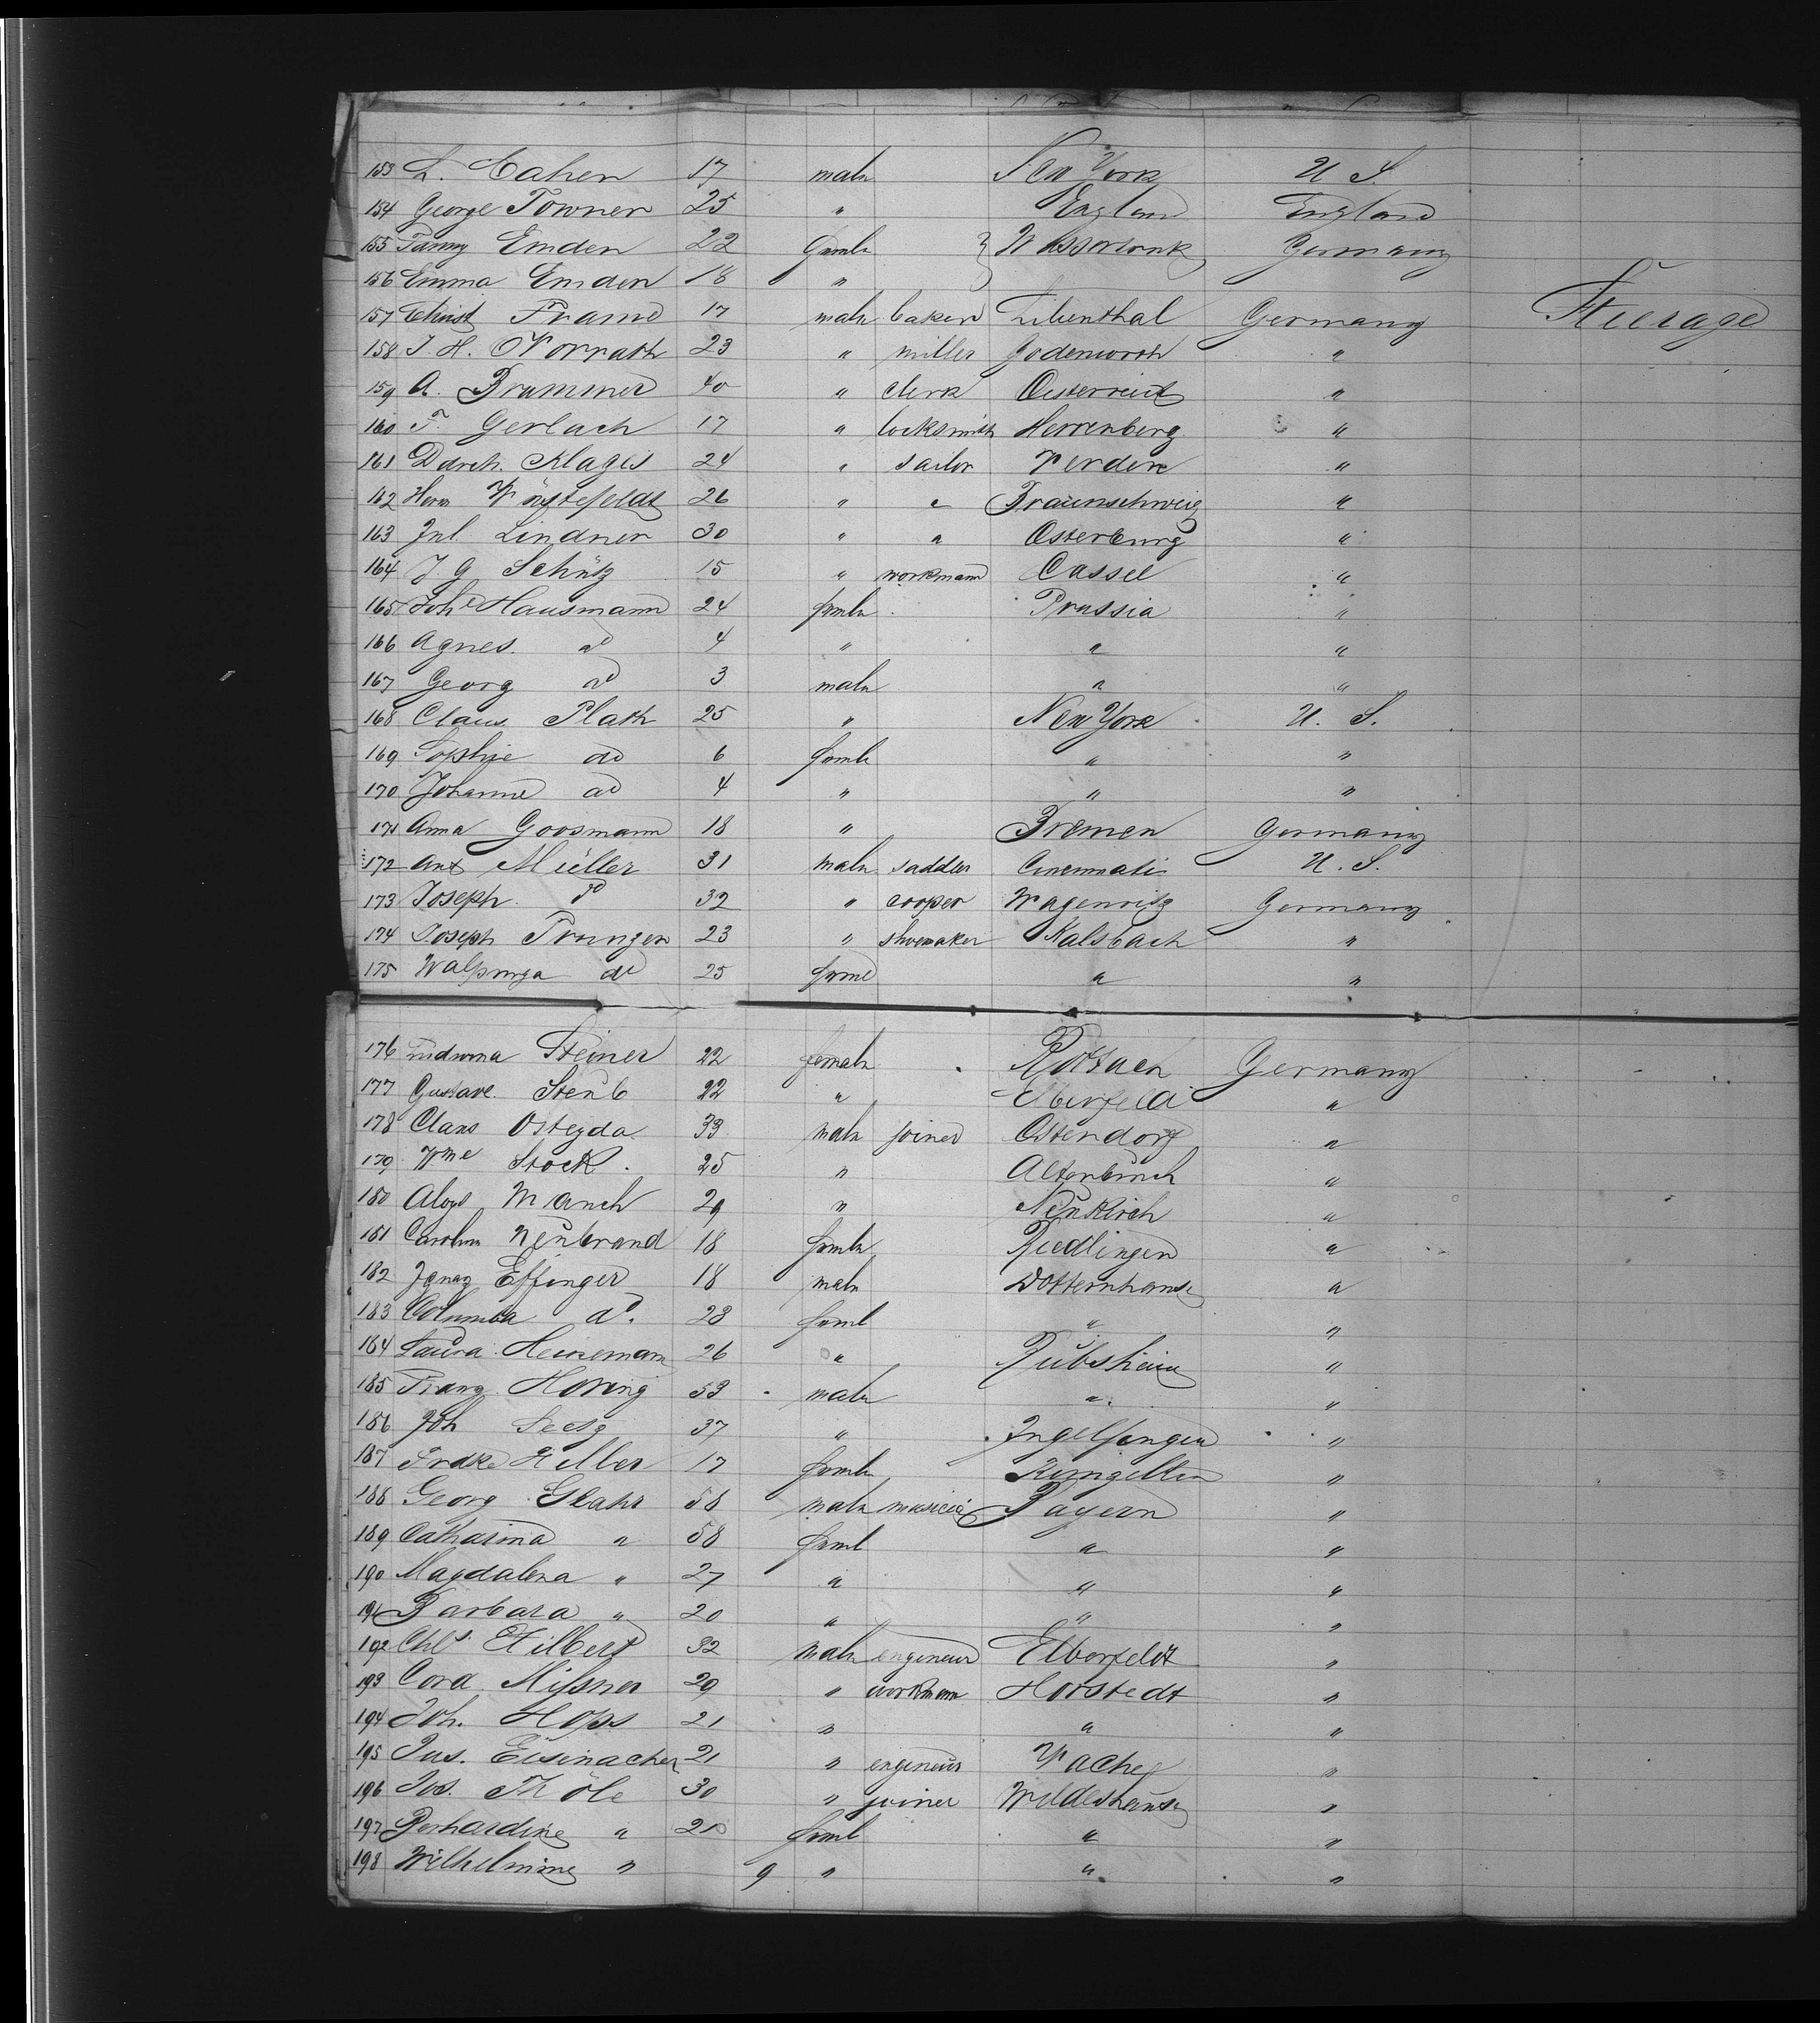 153 L. Cahen 17 male New York U S.
154 George Towner 25 " England England
155 Fanny Emden 22 femle Germany
156 Emma Emden 18 "
157 Christ Frame 17 male baker Lilienthal Germany Steerage
158 J. H. Vorrath 23 " miller Godenworth "
159 A. Brummer 40 " clerk Oesterreich "
160 F. Gerlach 17 " locksmith Herrenberg "
161 Ddrch. Klages 24 " sailor Verden "
162 Herm Wüstefeldt 26 " " Braunschweig "
163 Jul. Lindner 30 " " Osterburg "
164 J G Schütz 15 " workmann Cassel "
165 Johe Hausmann 24 femle Prussia "
166 Agnes. do 4 " " "
167 Georg do 3 male " "
168 Claus Plath 25 " New York U. S.
169 Sophie do 6 femle " "
170 Johanne do 4 " " "
171 Anna Goosmann 18 " Bremen Germany
172 Ant Müller 31 male saddler Cincinnati U. S.
173 Joseph do 32 " cooper Wagenritz Germany
174 Joseph Prunzen 23 " shoemaker Kalsbach "
175 Walpurga do 25 feml " "
176 Steiner 22 female Germany
177 Gustave Stenb 22 " Elberfeld "
178 Claus Ostegda 33 male joiner Ostendorf "
179 Wme Stock. 25 " Altenbruch "
180 Aloys Manch 29 " Neukirch "
181 Carolina Neubrand 18 femle Riedlingen "
182 Ignaz Effinger 18 male Dotternhause "
183 Columba do. 23 feml " "
184 Laura Heinemann 26 " Rübsheim "
185 Franz Horing 53 male " "
186 Joh 37 " Ingelfingen "
187 Fredke Hilber 17 femle "
188 Georg Glahr 58 male musicia Bayern "
189 Catharina " 58 feml " "
190 Magdalena " 27 " " "
191 Barbara " 20 " " "
192 Chls Hilbert 32 male engineur Elberfeldt "
193 Cord Missner 29 " workmann Horstedt "
194 Joh. Hops 21 " " "
195 Jus. Eisinacher 21 " engineur Vache "
196 Jos. Thöle 30 " joiner Wildeshause "
197 Gerhardine " 20 feml " "
198 Wilhelmine " 9 " " "